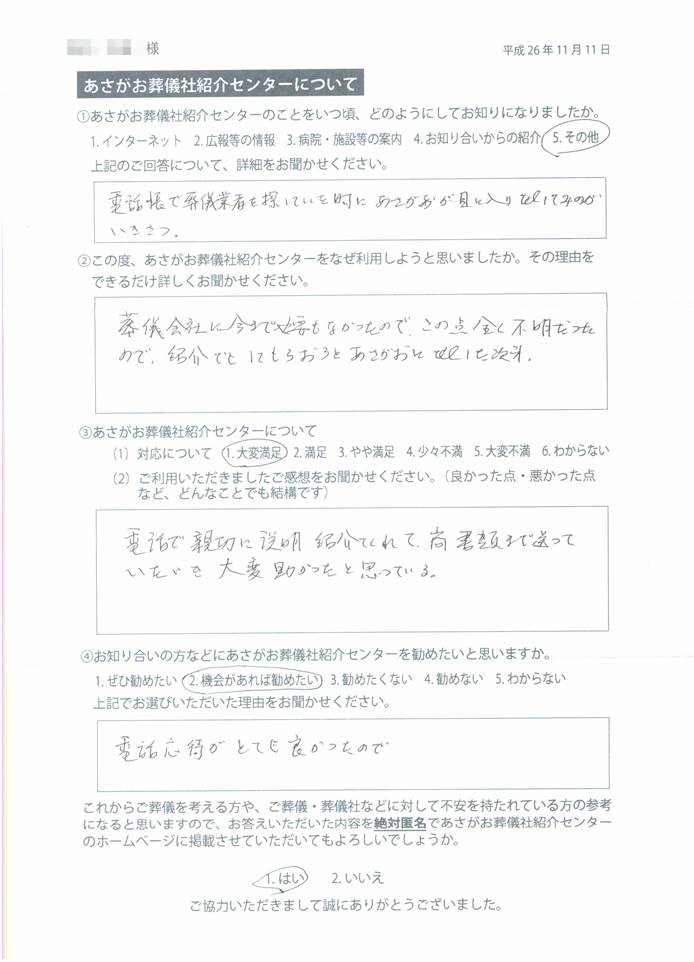 様
平成26年11月11日
あさがお葬儀社紹介センターについて
①あさがお葬儀社紹介センターのことをいつ頃、どのようにしてお知りになりましたか。
1.インターネット 2.広報等の情報 3.病院・施設等の案内 4.お知り合いからの紹介 5.その他
上記のご回答について、詳細をお聞かせください。
電話帳で葬儀業者を探していた時に あさがおが目に入り TELしてみたのが
いきさつ。
②この度、あさがお葬儀社紹介センターをなぜ利用しようと思いましたか。その理由を
できるだけ詳しくお聞かせください。
葬儀会社に今まで必要もなかったので、この点全く不明だった
ので、紹介でもしてもらおうとあさがおに TELした次第。
③あさがお葬儀社紹介センターについて
(1) 対応について 1.大変満足 2.満足 3.やや満足 4.少々不満 5.大変不満 6.わからない
(2) ご利用いただきましたご感想をお聞かせください。(良かった点・悪かった点
など、どんなことでも結構です)
電話で親切に説明 紹介してくれて、尚書類まで送って
いただき 大変助かったと思っている。
④お知り合いの方などにあさがお葬儀社紹介センターを勧めたいと思いますか。
1.ぜひ勧めたい 2.機会があれば勧めたい 3.勧めたくない 4.勧めない 5.わからない
上記でお選びいただいた理由をお聞かせください。
電話応待がとても良かったので
これからご葬儀を考える方や、ご葬儀・葬儀社などに対して不安を持たれている方の参考
になると思いますので、お答えいただいた内容を絶対匿名であさがお葬儀社紹介センター
のホームページに掲載させていただいてもよろしいでしょうか。
1.はい 2.いいえ
ご協力いただきまして誠にありがとうございました。